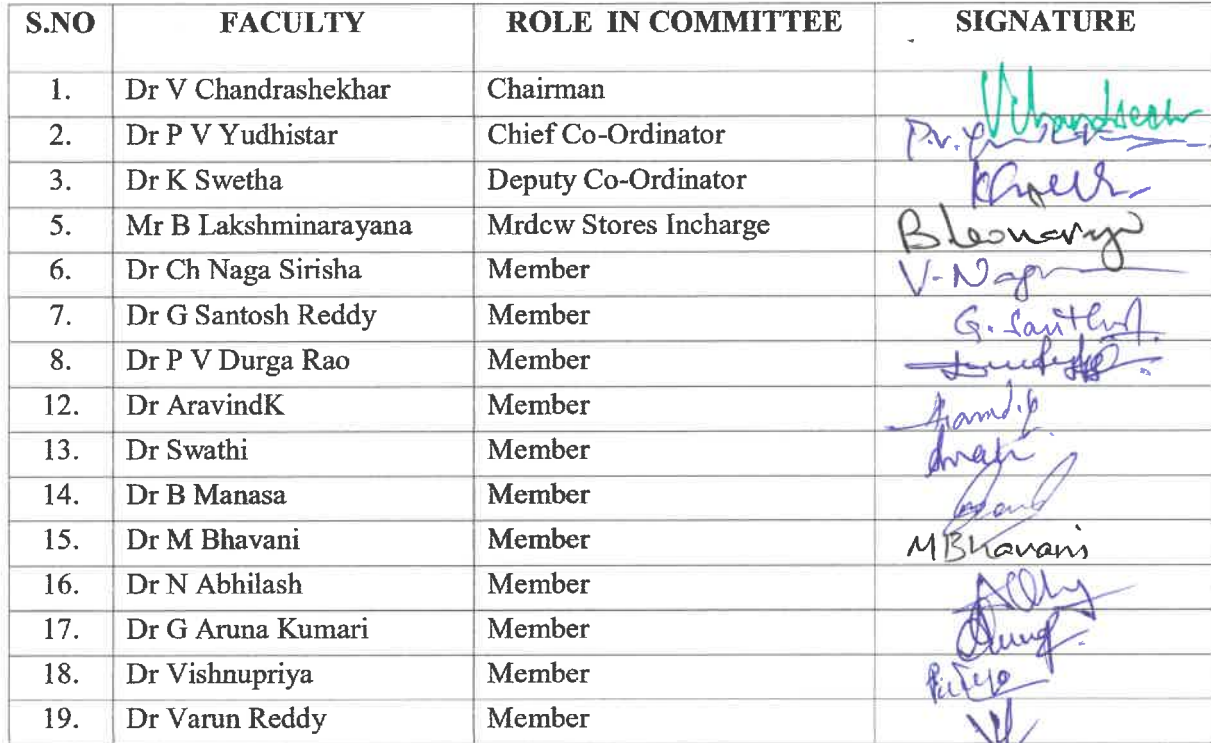 S.NO FACULTY ROLE IN COMMITTEE SIGNATURE
1. Dr V Chandrashekhar Chairman
2. Dr P V Yudhistar Chief Co-Ordinator P.V.
3. Dr K Swetha Deputy Co-Ordinator
5. Mr B Lakshminarayana Mrdcw Stores Incharge
6. Dr Ch Naga Sirisha Member
7. Dr G Santosh Reddy Member
8. Dr P V Durga Rao Member
12. Dr AravindK Member
13. Dr Swathi Member
14. Dr B Manasa Member
15. Dr M Bhavani Member MBhavani
16. Dr N Abhilash Member
17. Dr G Aruna Kumari Member
18. Dr Vishnupriya Member
19. Dr Varun Reddy Member